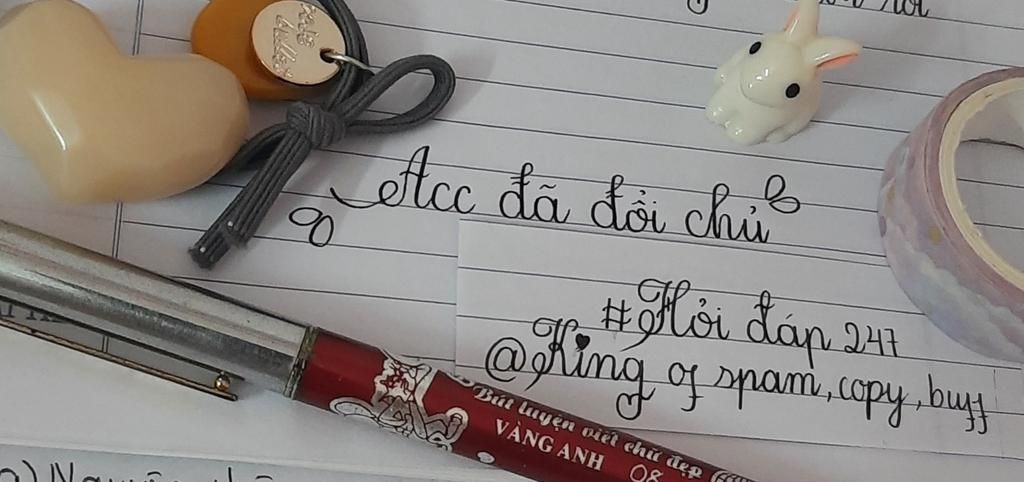 Acc đã đổi chủ
#Hỏi đáp 247
@King of spam, copy, buff
Bút luyện viết chữ đẹp
VÀNG ANH
08